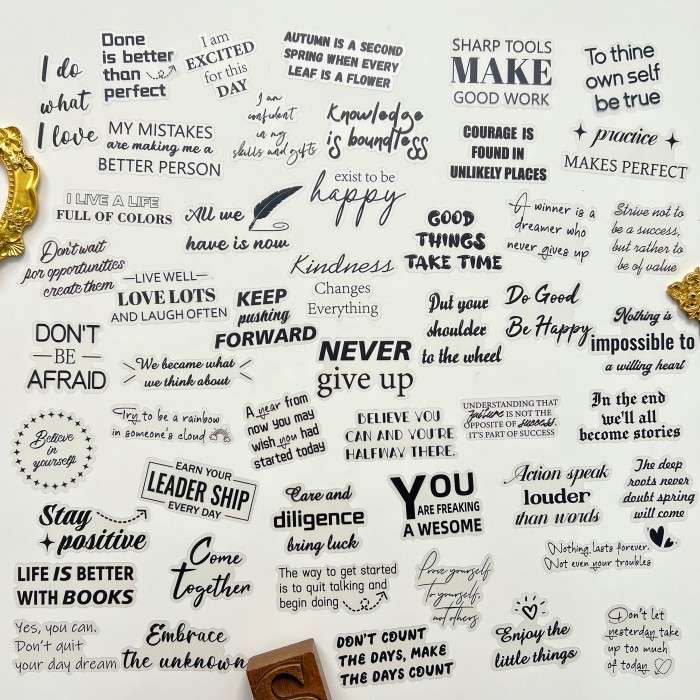 I do
what
I love
Done
is better
than
perfect
I am
EXCITED
for this
DAY
AUTUMN IS A SECOND
SPRING WHEN EVERY
LEAF IS A FLOWER
SHARP TOOLS
MAKE
GOOD WORK
To thine
own self
be true
MY MISTAKES
are making me a
BETTER PERSON
I am
confident
in my
skills and gifts
Knowledge
is boundless
COURAGE IS
FOUND IN
UNLIKELY PLACES
practice
MAKES PERFECT
I LIVE A LIFE
FULL OF COLORS
All we
have is now
exist to be
happy
GOOD
THINGS
TAKE TIME
A winner is a
dreamer who
never gives up
Strive not to
be a success,
but rather to
be of value
Don't wait
for opportunities
create them
LIVE WELL
LOVE LOTS
AND LAUGH OFTEN
KEEP
pushing
FORWARD
Kindness
Changes
Everything
Put your
shoulder
to the wheel
Do Good
Be Happy
Nothing is
impossible to
a willing heart
DON'T
BE
AFRAID
We became what
we think about
NEVER
give up
Believe
in
yourself
Try to be a rainbow
in someone's cloud
A year from
now you may
wish you had
started today
BELIEVE YOU
CAN AND YOU'RE
HALFWAY THERE.
UNDERSTANDING THAT
failure IS NOT THE
OPPOSITE OF success,
IT'S PART OF SUCCESS
In the end
we'll all
become stories
EARN YOUR
LEADER SHIP
EVERY DAY
Stay
positive
Care and
diligence
bring luck
YOU
ARE FREAKING
A WESOME
Action speak
louder
than words
The deep
roots never
doubt spring
will come
LIFE IS BETTER
WITH BOOKS
Come
together
The way to get started
is to quit talking and
begin doing
Prove yourself
to yourself,
not others
Nothing lasts forever.
Not even your troubles
Yes, you can.
Don't quit
your day dream
Embrace
the unknown
DON'T COUNT
THE DAYS, MAKE
THE DAYS COUNT
Enjoy the
little things
Don't let
yesterday take
up too much
of today